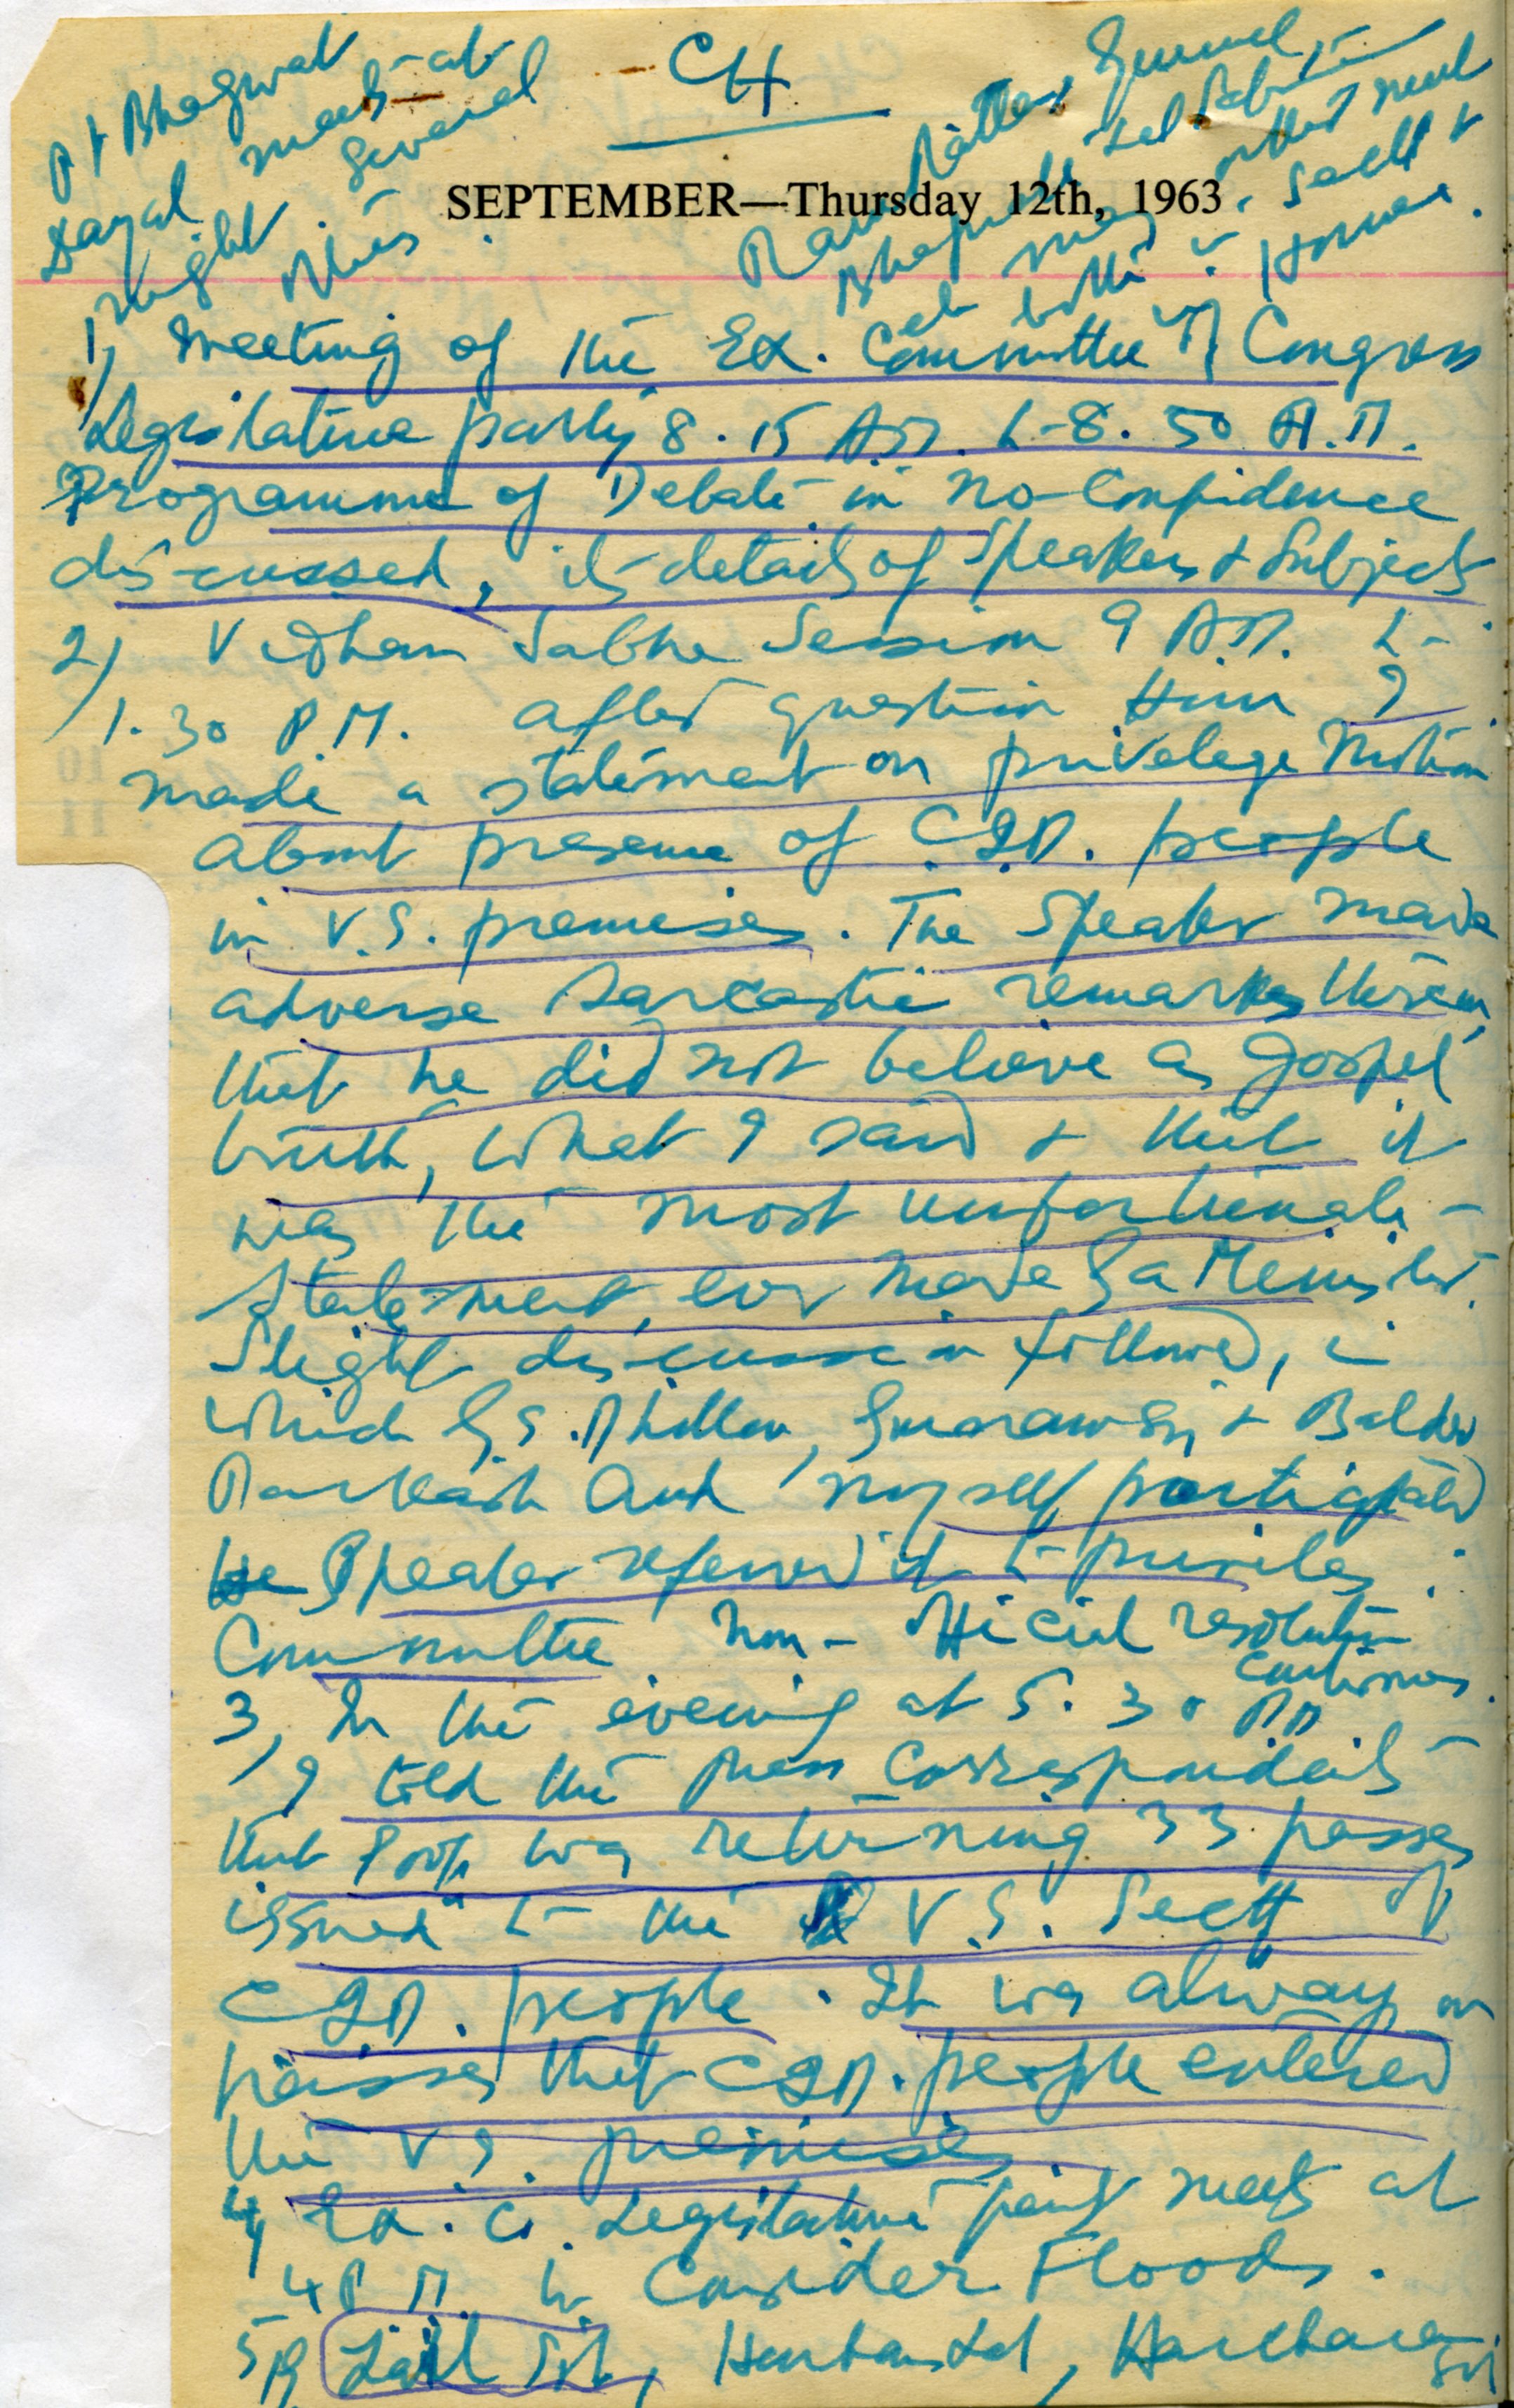 CH
Pt Bhagwat
Dayal meets at
night. General
News
Rattan
Ram
may
both
Home.
SEPTEMBER—Thursday 12th, 1963
1, Meeting of the Ex. Committee of Congress
Legislative party 8.15 A.M. to 8.50 A.M.
Programme of Debate in No-Confidence
discussed, its details of Speakers & Subjects
2) Vidhan Sabha Session 9 A.M. to
1.30 P.M. after question Hour I
made a statement on privelege Motion
about presence of C.I.D. people
in V.S. premises. The Speaker made
adverse sarcastic remarks thereon,
that he did not believe as gospel
truth, what I said & that it
was the most unfortunate
statement, ever made by a Minister.
Slight discussion followed, in
which G.S. Dhillon, Gurnam Sing & Baldev
Parkash and myself participated
The Speaker referred it to privileg
Committee. Non-official resolution
continues.
3, In the evening at 5.30 PM
I told the press correspondents
that Govt was returning 33 passes
issued to the V.S. Sectt of
C.I.D. people. It was always on
passes that C.I.D. people entered
the V.S. premises
4, Ex. C. Legislative party meets at
4 P.M. to Consider Floods.
5, Harbans Lal, Harcharan